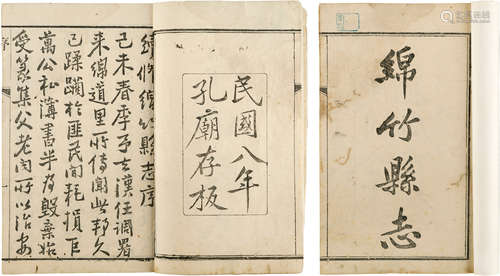 綿竹縣志
民國八年
孔廟存板
續修綿竹縣志序
己未春季予去漢任調署
来綿道里所傳聞此邦久
已蹂躪於匪民間耗損巨
萬公私簿書半为毀棄始
受篆集父老問所以治安
序